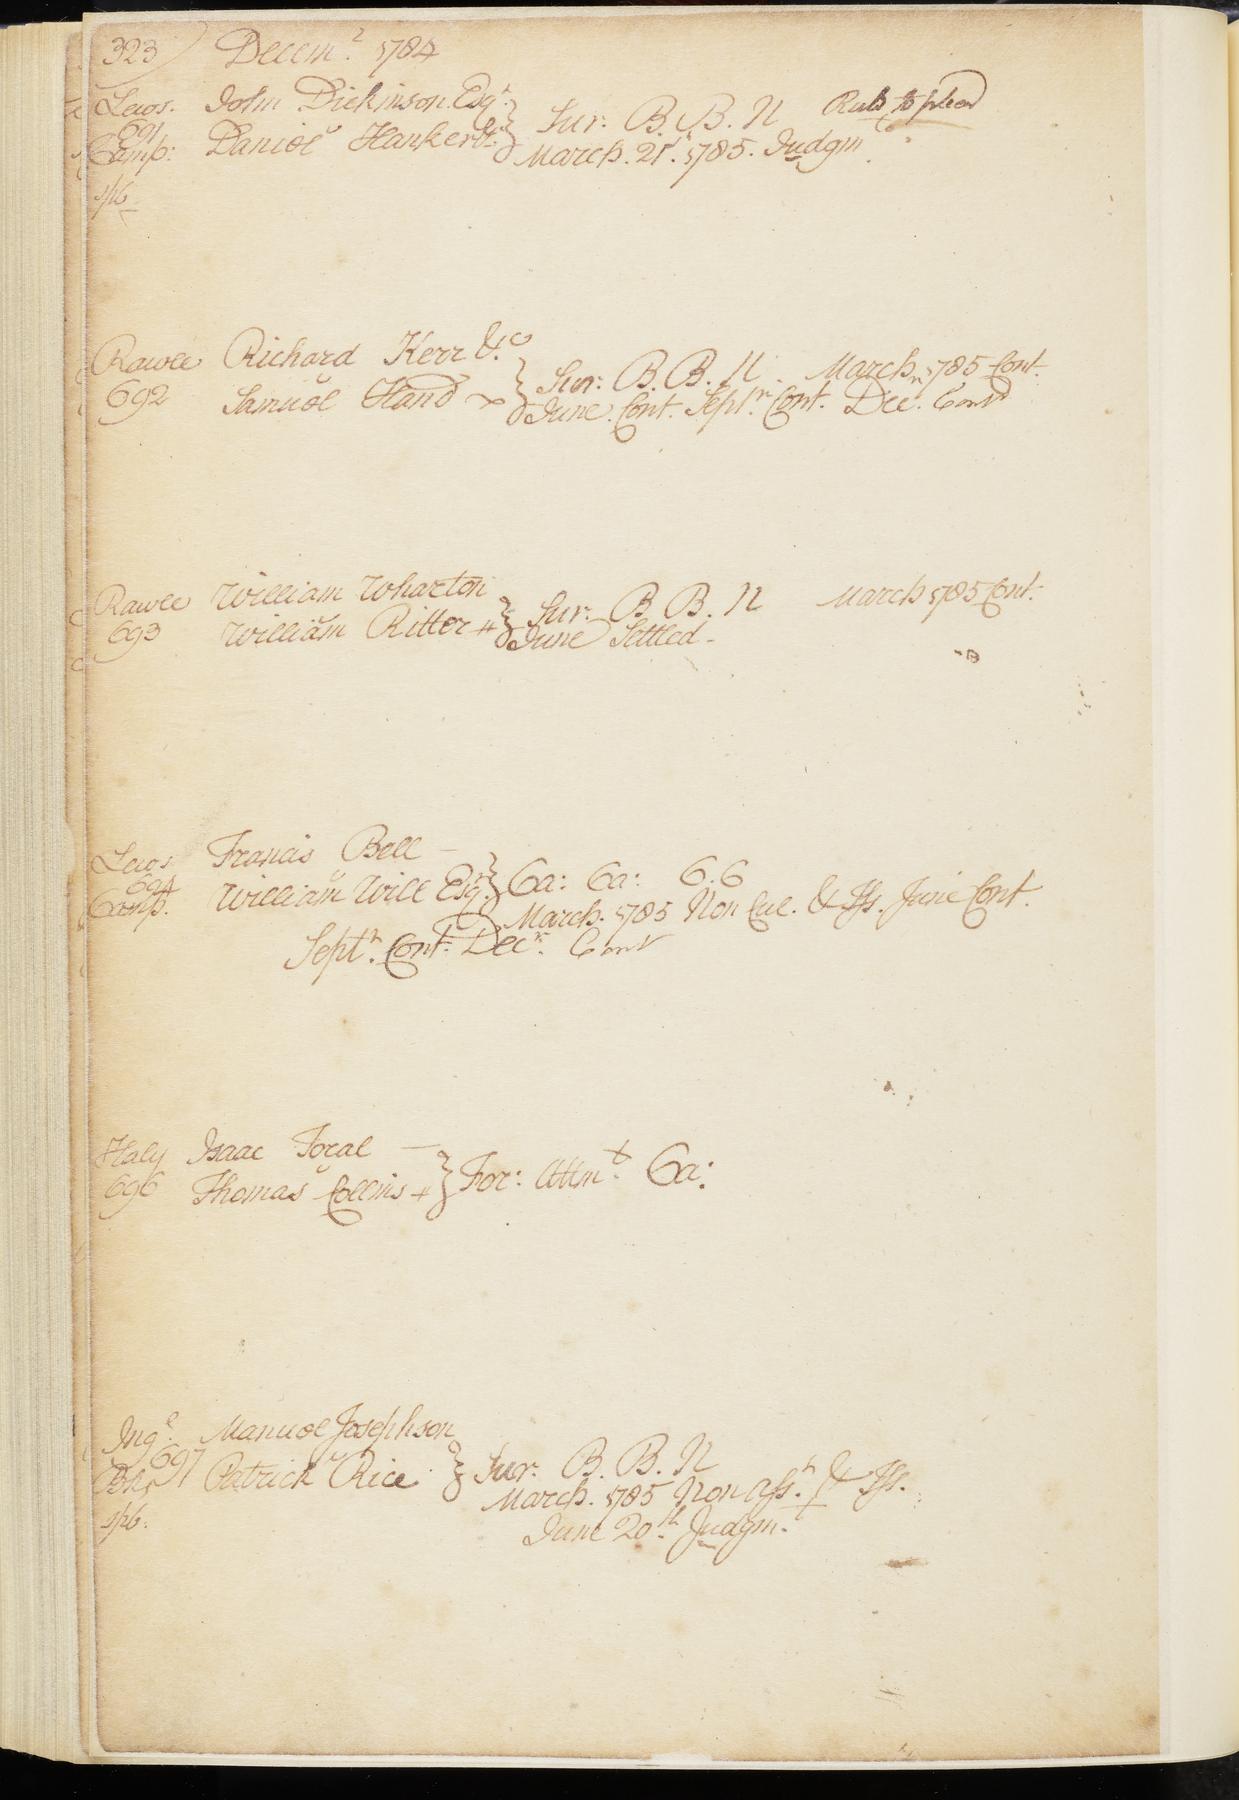 323 Decem.r 1784
Lewis. John Dickinson Esqr.
691 Sur: B. B. N Rule to plead
Camp: Daniel Hankerle
March. 21st. 1785. Judgm
spb
Rawle Richard Kerr & Co
692 Samuel Hand Sur: B. B. N March 1785 Cont.
June. Cont. Septr. Cont. Dec. Cont
Rawle William Wharton
693 William Ritter + Sur: B B. N March 1785 Cont.
June Settled -
Lewis Francis Bell -
694 Ca: Ca: C.C
Camp. William Will Esqr.
March. 1785 Non Cul. & Iss. June Cont.
Septr. Cont. Decr. Cont
Haly Isaac Foral -
696 Thomas Collins + For: Attmt. Ca:
Ingl. Manuel Josephson
697 Patrick Rice Sur. B. B. N
March. 1785 Non Asst. & Iss.
spb.
June 20th. Judgm.t